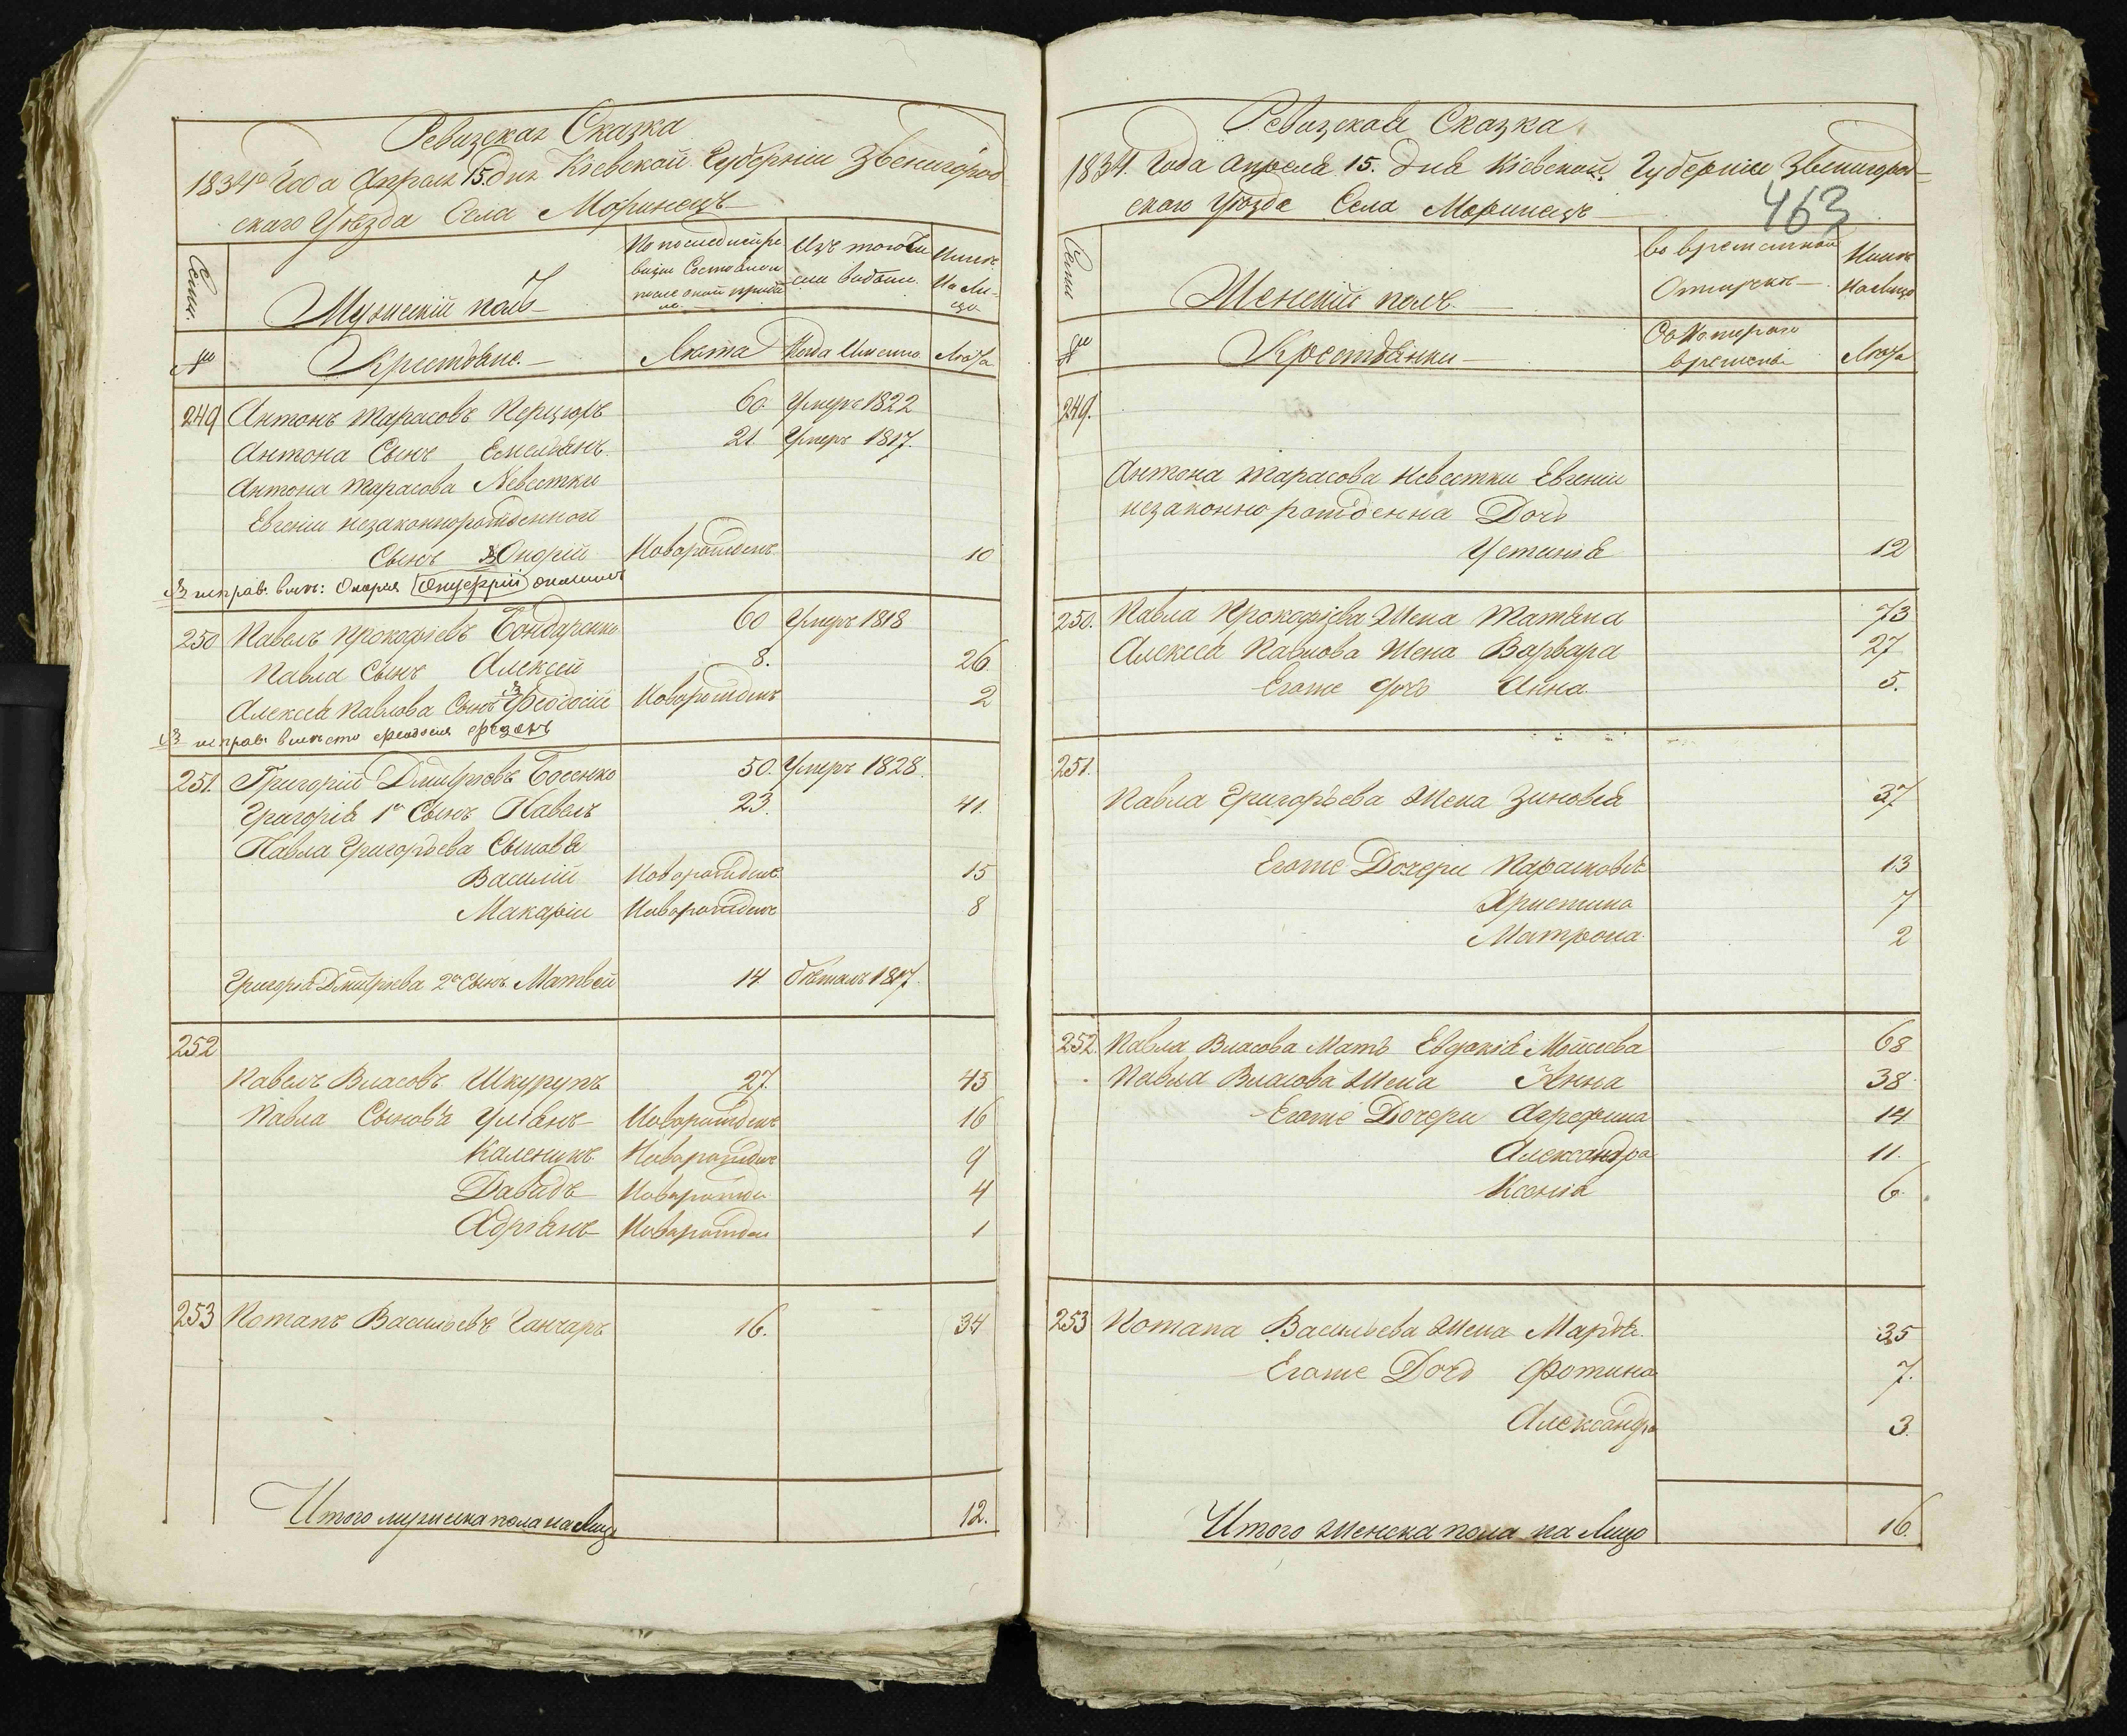 Ревизская Сказка
1834го Года Апреля 15. дня Кіевской Губерніи Звенигород
скаго Уѣзда Села Моринецъ
Семіи.
Мужескій полъ
По последней ре
визіи Состояло и
после оной прибы
ло.
Изъ того Чи
сла выбыло.
Ныне
На Ли-
цо
№
Крестьяне.
Лѣта
Когда Именно
Лѣта
249 Антонъ Тарасовъ Перцюхъ 60. Умеръ 1822
Антона Сынъ Емельянъ. 21 Умеръ 1817.
Антона Тарасова Невестки
Евгеніи незаконнорожденной
Сынъ Онофрій Новорожденъ 10
исправ. вмѣс: Онофрія Онуфрій
250 Павелъ Прокофіевъ Бондаренко 60 Умеръ 1818
Павла Сынъ Алексей 8. 26
Алексея Павлова Сынъ Феодосій Новорожденъ 2
исправ. вместо Феодосія
251. Григорій Дмитріевъ Босенко 50. Умеръ 1828.
Григорія 1й Сынъ Павелъ 23. 41.
Павла Григорьева Сыновья
Василій Новорожден 15
Макарій Новорожден 8
Григорія Дмитріева 2й Сынъ Матвей 14 бежалъ 1817.
252
Павелъ Власовъ Шкурупъ 27. 45
Павла Сыновья Уліанъ Новорожден 16
Каленикъ Новорожден 9
Давыдъ Новорожден 4
Адріянъ Новорожден 1
253 Потапъ Васильевъ Ганчаръ 16. 34
Итого мужеска пола на Лицо 12.
Ревизская Сказка
1834. Года Апреля 15. Дня Кіевской Губерніи Звенигород=
скаго Уѣзда Села Моринецъ
463
Семіи
Женскій полъ.
Во временной
Отлучке
Ныне
На Лицо
№
Крестьянки
Съ Котораго
времени
Лѣта
249.
Антона Тарасова Невестки Евгеніи
незаконно рожденна Дочь
Устинія 12
250. Павла Прокофіева Жена Татіяна 73
Алексея Павлова Жена Варвара 27
Егоже дочь Анна. 5.
251.
Павла Григорьева Жена Зиновія 37
Егоже Дочери Парасковія 13
Христина 7
Матрона 2
252. Павла Власова Мать Евдокія Моисеева 68
Павла Власова Жена Анна 38
Егоже Дочери Агрефина 14
Александра 11.
Ксенія 6.
253 Потапа Васильева Жена Марѳа. 35
Егоже Дочь Фотина 7.
Александра 3.
Итого Женска пола на Лицо 16.